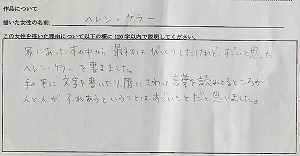 作品について
描いた女性の名前: ヘレン・ケラー
この女性を描いた理由について以下の欄に120字以内で説明してください。
家にあった本の中から、最初はびっくりしたけれど、すごいと思った
ヘレン・ケラーを書きました。
手に文字を書いたり、唇にさわって言葉を読みとるところが
人と人がふれあうということはすごいことだと思いました。